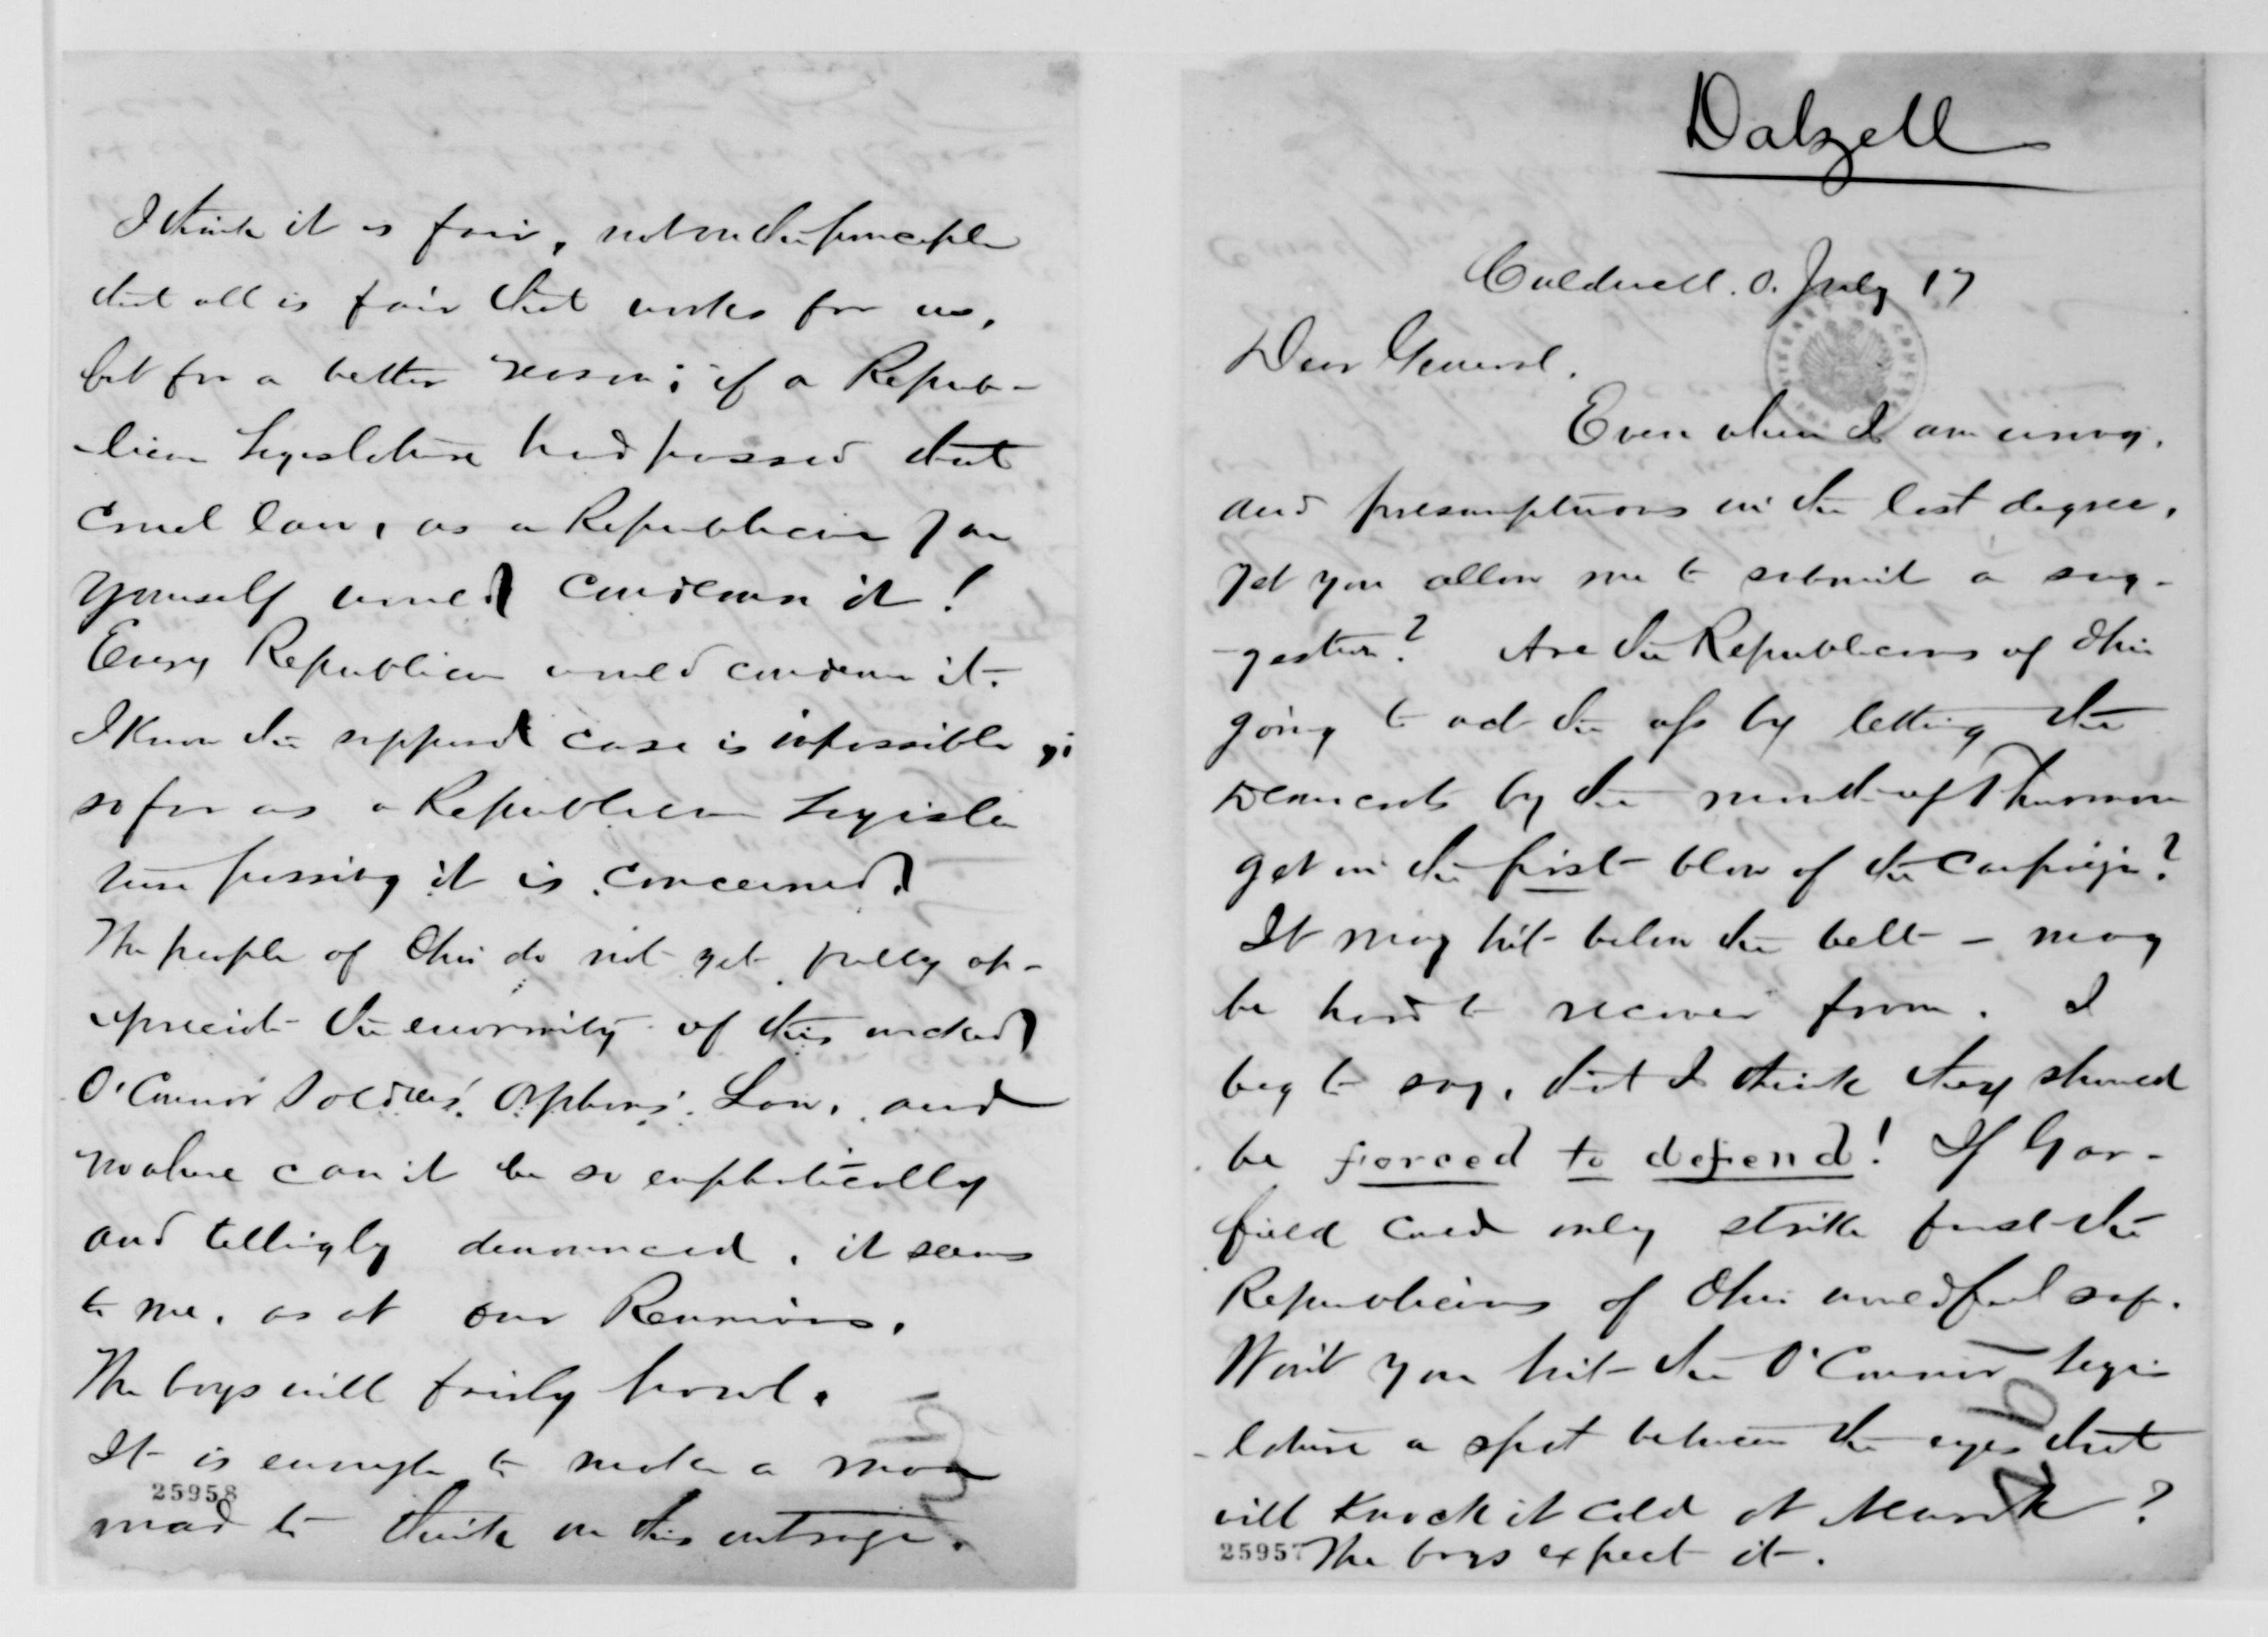 Dalzell
Caldwell. O. July 17
Dear General.
Even when I am wrong,
and presumptuous in the last degree,
yet you allow me to submit a sug-
-gestion? Are the Republicans of Ohio
going to act the ass by letting the
Democrats by the mouth of Thurman
get in the first blow of the campaign?
It may hit below the belt - may
be hard to recover from. I
beg to say, that I think they should
be forced to defend! If Gar-
field could only strike first the
Republicans of Ohio would feel safe.
Won't you hit the O'Connor Legis
-lature a spat between the eyes that
will knock it cold at Newark?
25957 The boys expect it.
I think it is fair, not on the principle
that all is fair that works for us,
but for a better reason; if a Repub-
-lican Legislature had passed that
cruel law, as a Republican you
yourself would condemn it!
Every Republican would condemn it.
I know the supposed case is impossible,
so far as a Republican Legisla
ture passing it is concerned.
The people of Ohio do not yet fully ap-
-preciate the enormity of this wicked
O'Connor Soldiers' Orphans' Law, and
nowhere can it be so emphatically
and tellingly denounced, it seems
to me, as at our Reunions.
The boys will fairly howl.
It is enough to make a man
25958
mad to think on this outrage.